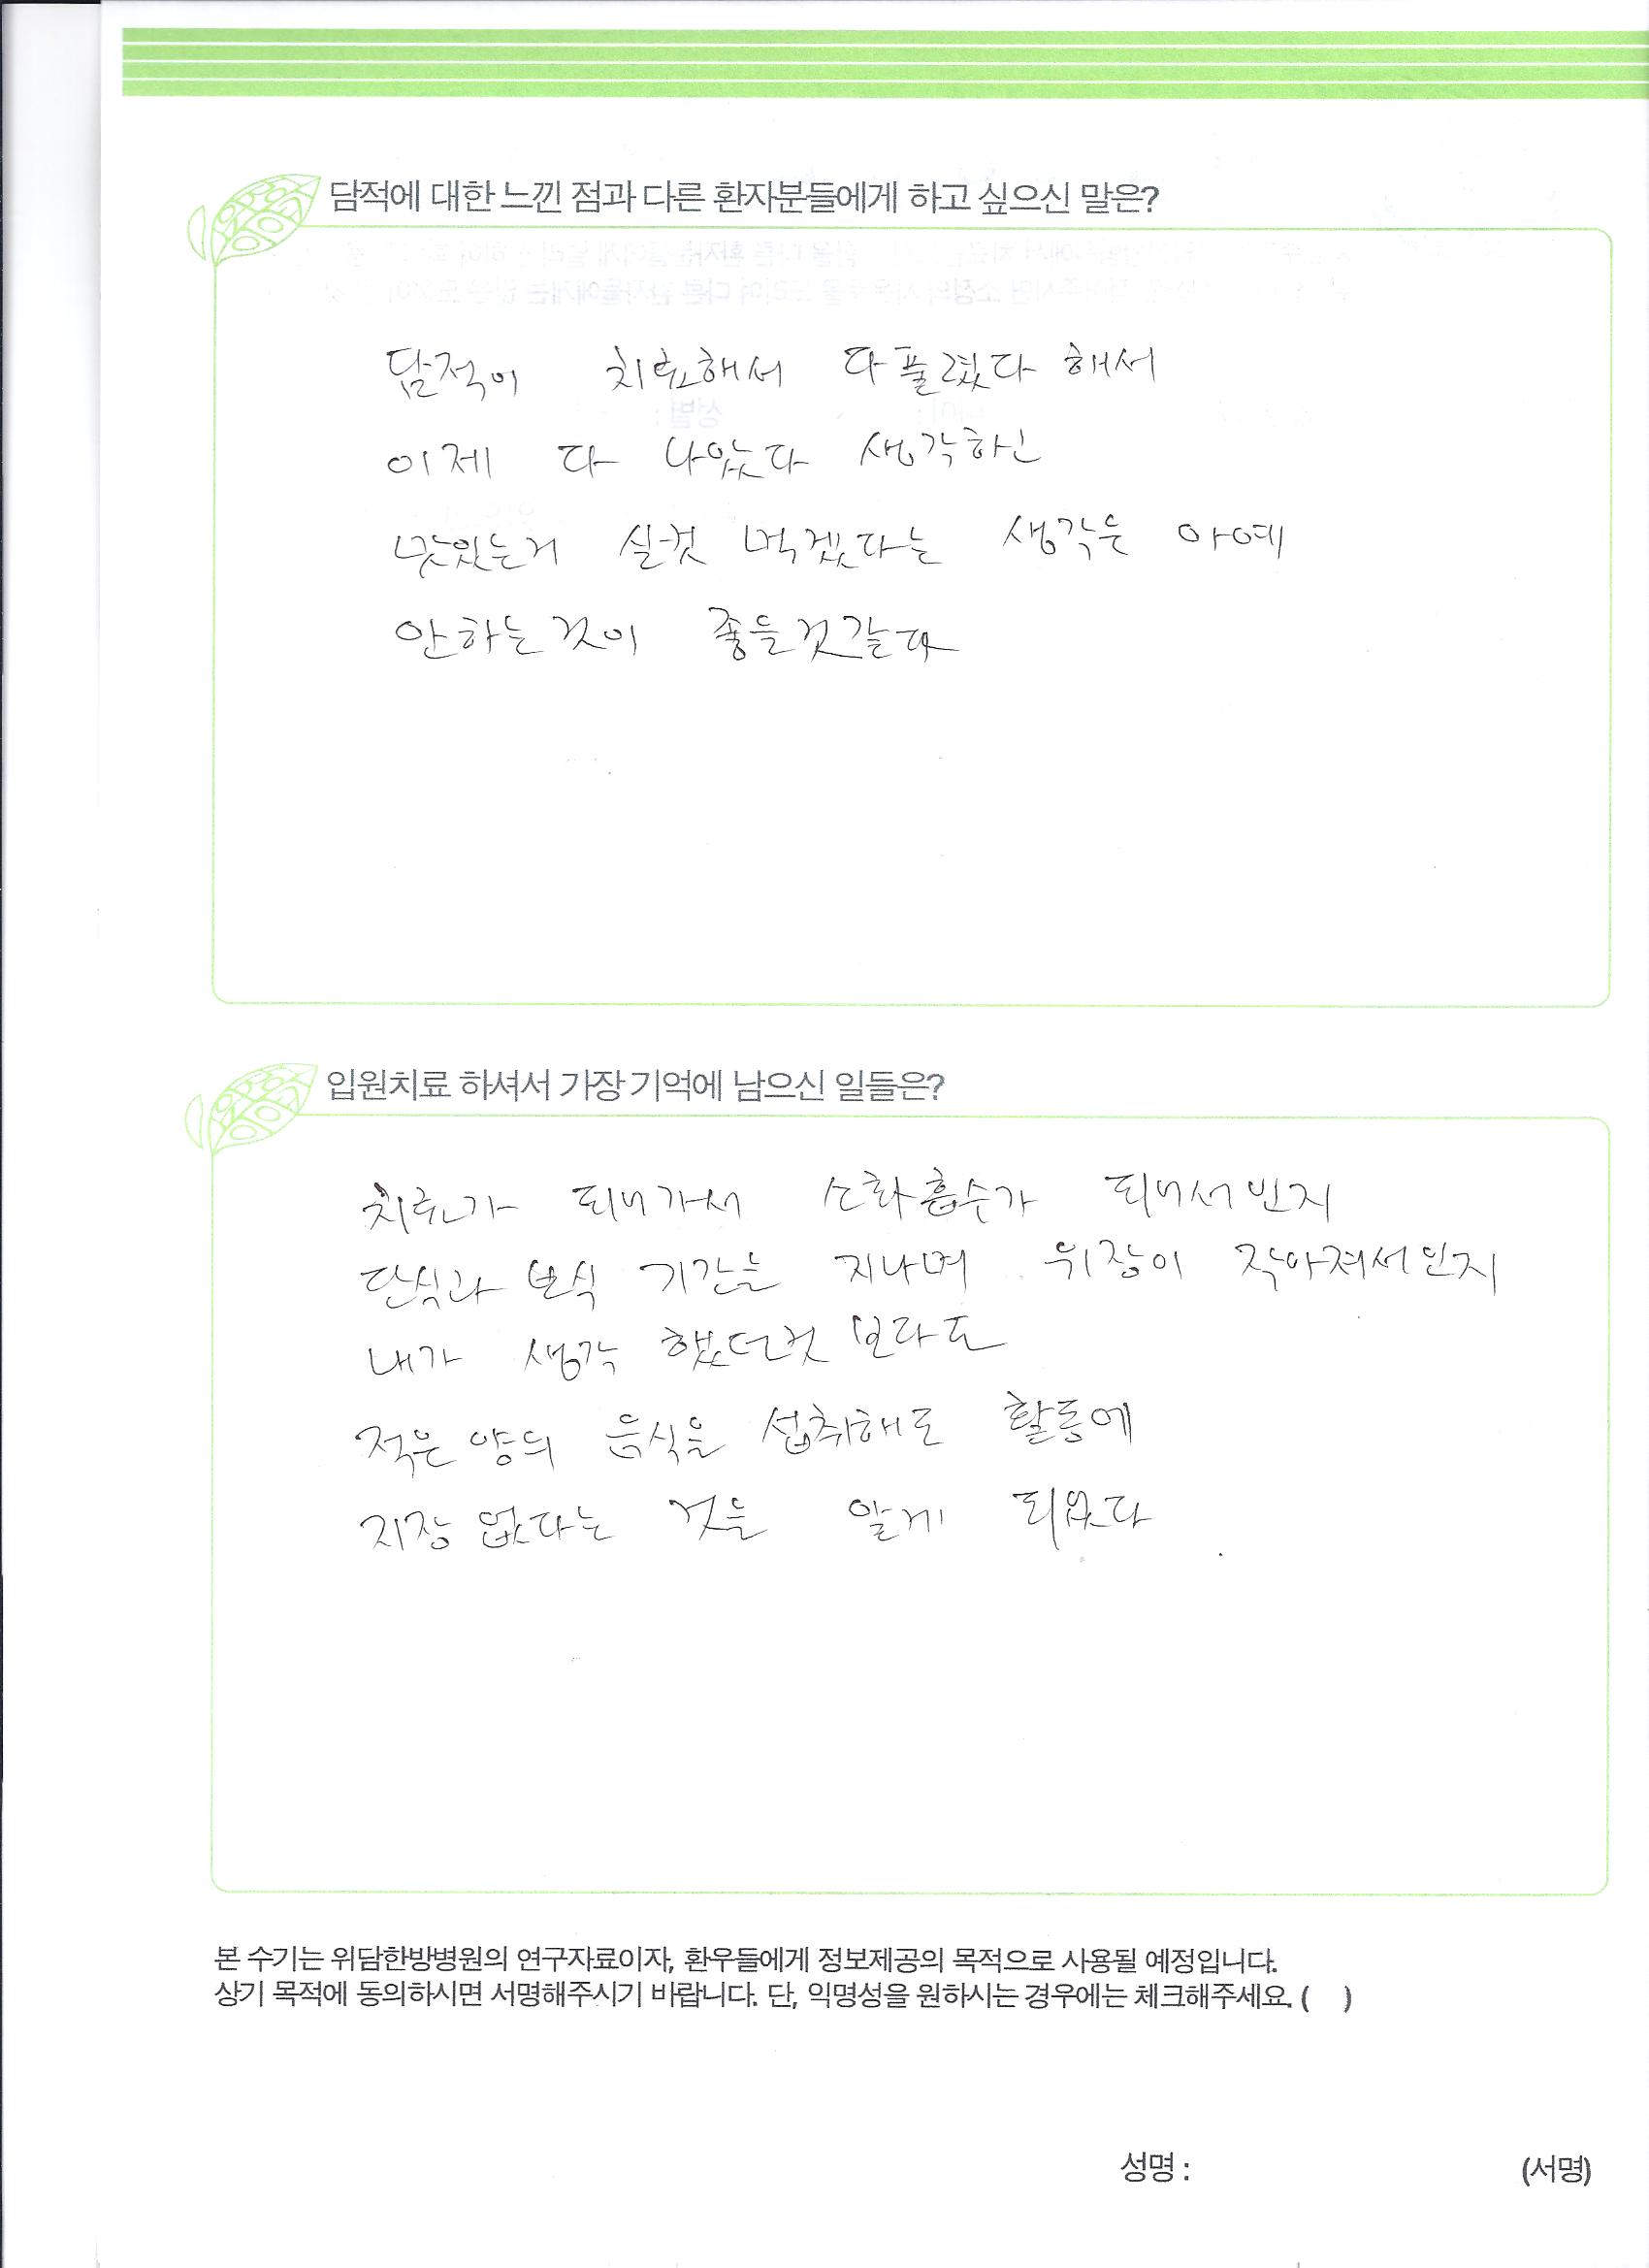 담적에 대한 느낀 점과 다른 환자분들에게 하고 싶으신 말은?
담적이 치료해서 다풀렸다 해서
이제 다 나았다 생각하신
맛있는거 실컷 먹겠다는 생각은 아예
안하는것이 좋을것같다
입원치료 하셔서 가장 기억에 남으신 일들은?
치료가 되어가서 소화흡수가 되어서인지
단식과 보식 기간을 지나며 위장이 작아져서인지
내가 생각 했던것 보다도
적은 양의 음식을 섭취해도 활동에
지장 없다는 것을 알게 되었다
본 수기는 위담한방병원의 연구자료이자, 환우들에게 정보제공의 목적으로 사용될 예정입니다.
상기 목적에 동의하시면 서명해주시기 바랍니다. 단, 익명성을 원하시는 경우에는 체크해주세요. ( )
성명 : (서명)